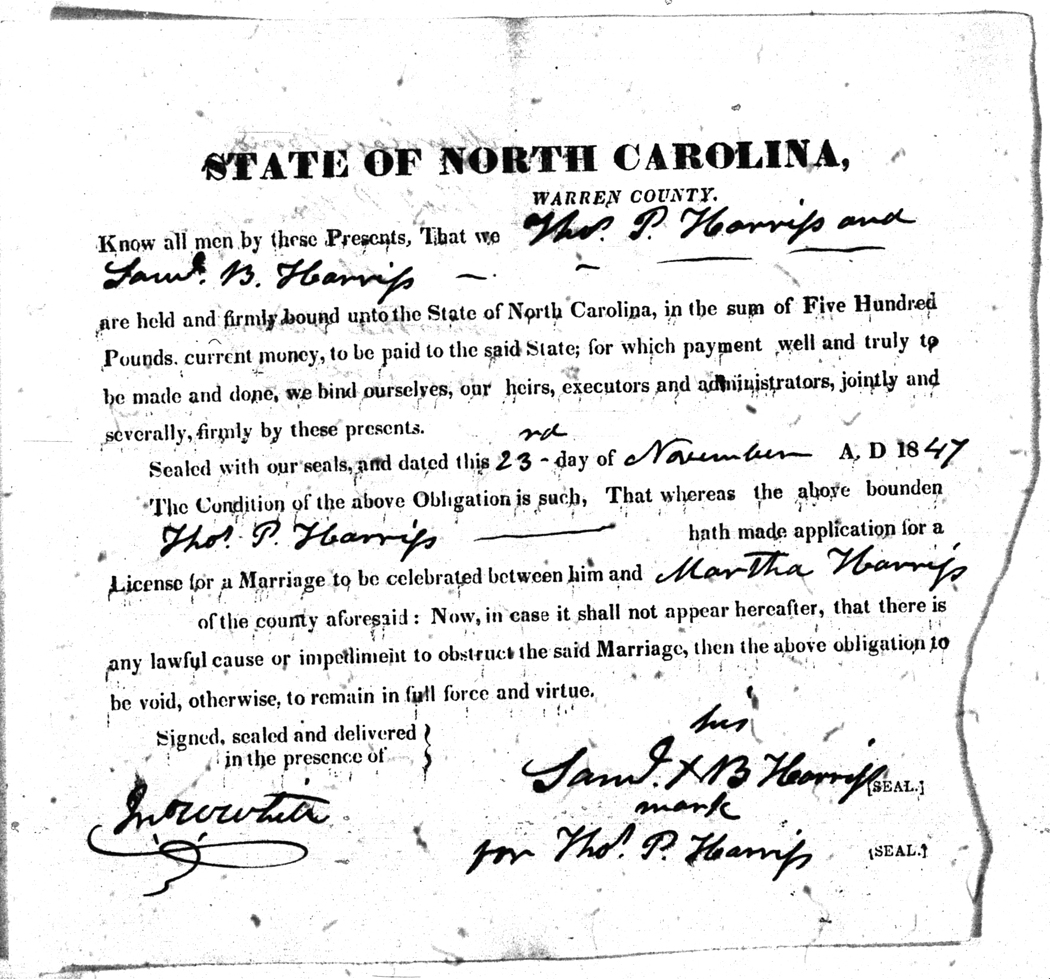 STATE OF NORTH CAROLINA,
WARREN COUNTY.
Know all men by these Presents, That we Thos. P. Harriss and
Saml. B. Harriss
are held and firmly bound unto the State of North Carolina, in the sum of Five Hundred
Pounds. current money, to be paid to the said State; for which payment well and truly to
be made and done, we bind ourselves, our heirs, executors and administrators, jointly and
severally, firmly by these presents.
Sealed with our seals, and dated this 23rd day of November A, D 1847
The Condition of the above Obligation is such, That whereas the above bounden
Thos. P. Harriss hath made application for a
License for a Marriage to be celebrated between him and Martha Harriss
of the county aforesaid: Now, in case it shall not appear hereafter, that there is
any lawful cause or impediment to obstruct the said Marriage, then the above obligation to
be void, otherwise, to remain in full force and virtue.
Signed, sealed and delivered
in the presence of
his
Saml. X B Harriss [SEAL.]
mark
Jno W White
for Thos. P. Harriss [SEAL.]